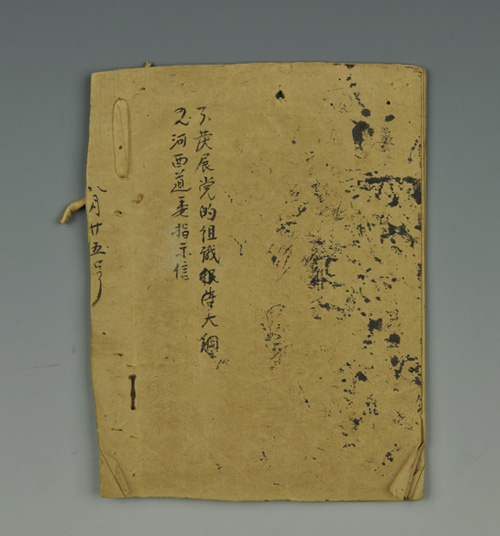 1、发展党的组识报告大纲
2、河西道委指示信
八月廿五号